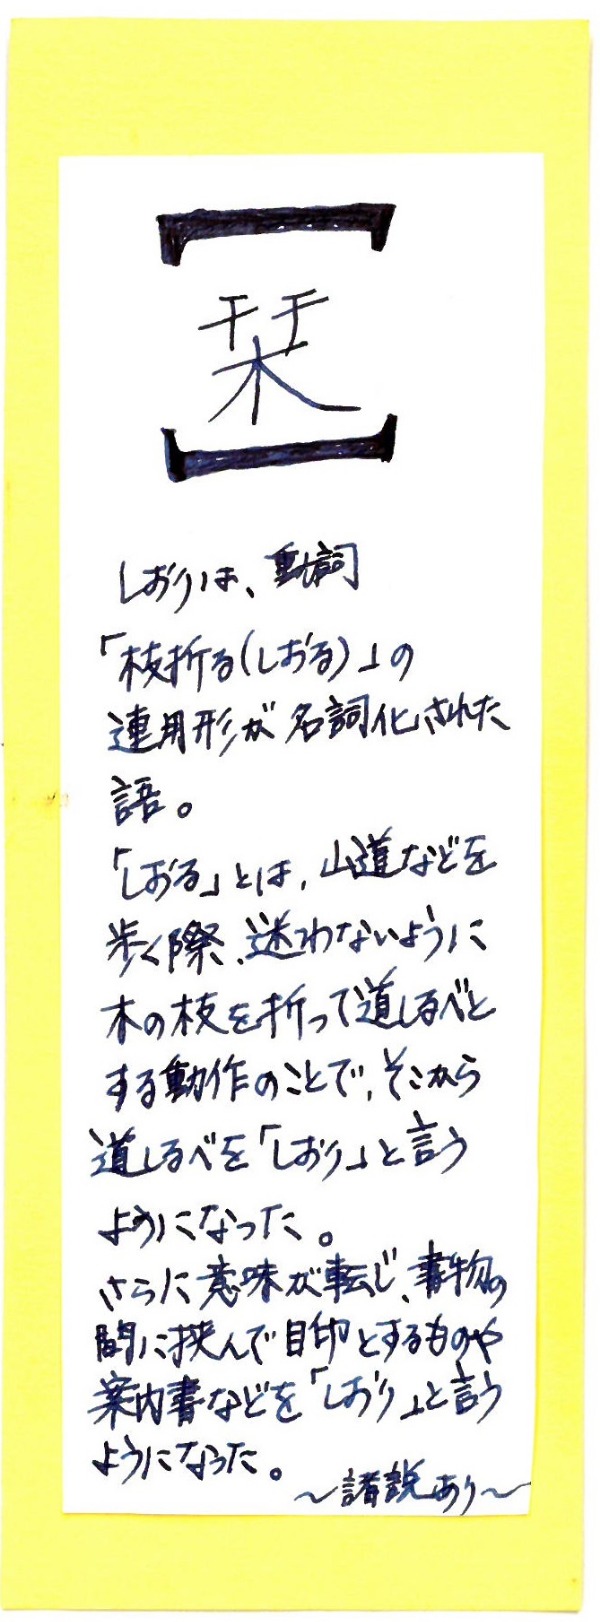 栞
しおりは、動詞
「枝折る(しおる)」の
連用形が名詞化された
語。
「しおる」とは、山道などを
歩く際、迷わないように
木の枝を折って道しるべと
する動作のことで、そこから
道しるべを「しおり」と言う
ようになった。
さらに意味が転じ、書物の
間に挟んで目印とするものや
案内書などを「しおり」と言う
ようになった。
～諸説あり～